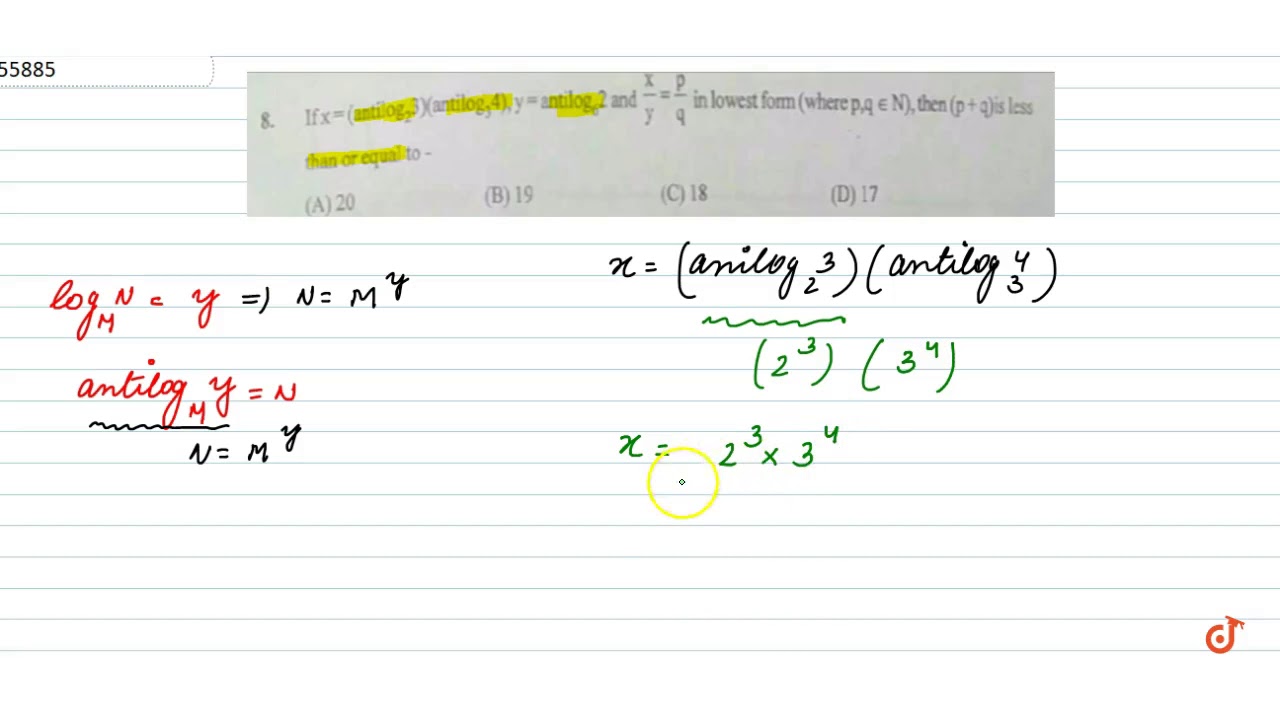 55885
8. If x = (antilog₂3)(antilog₃4), y = antilog₆2 and x/y = p/q in lowest form (where p,q ∈ N), then (p + q) is less
than or equal to -
(A) 20 (B) 19 (C) 18 (D) 17
log_M N = y => N = M^y
antilog_M y = N
N = M^y
x = (anilog₂ 3)(antilog₃ 4)
(2³) (3⁴)
x = 2³ × 3⁴